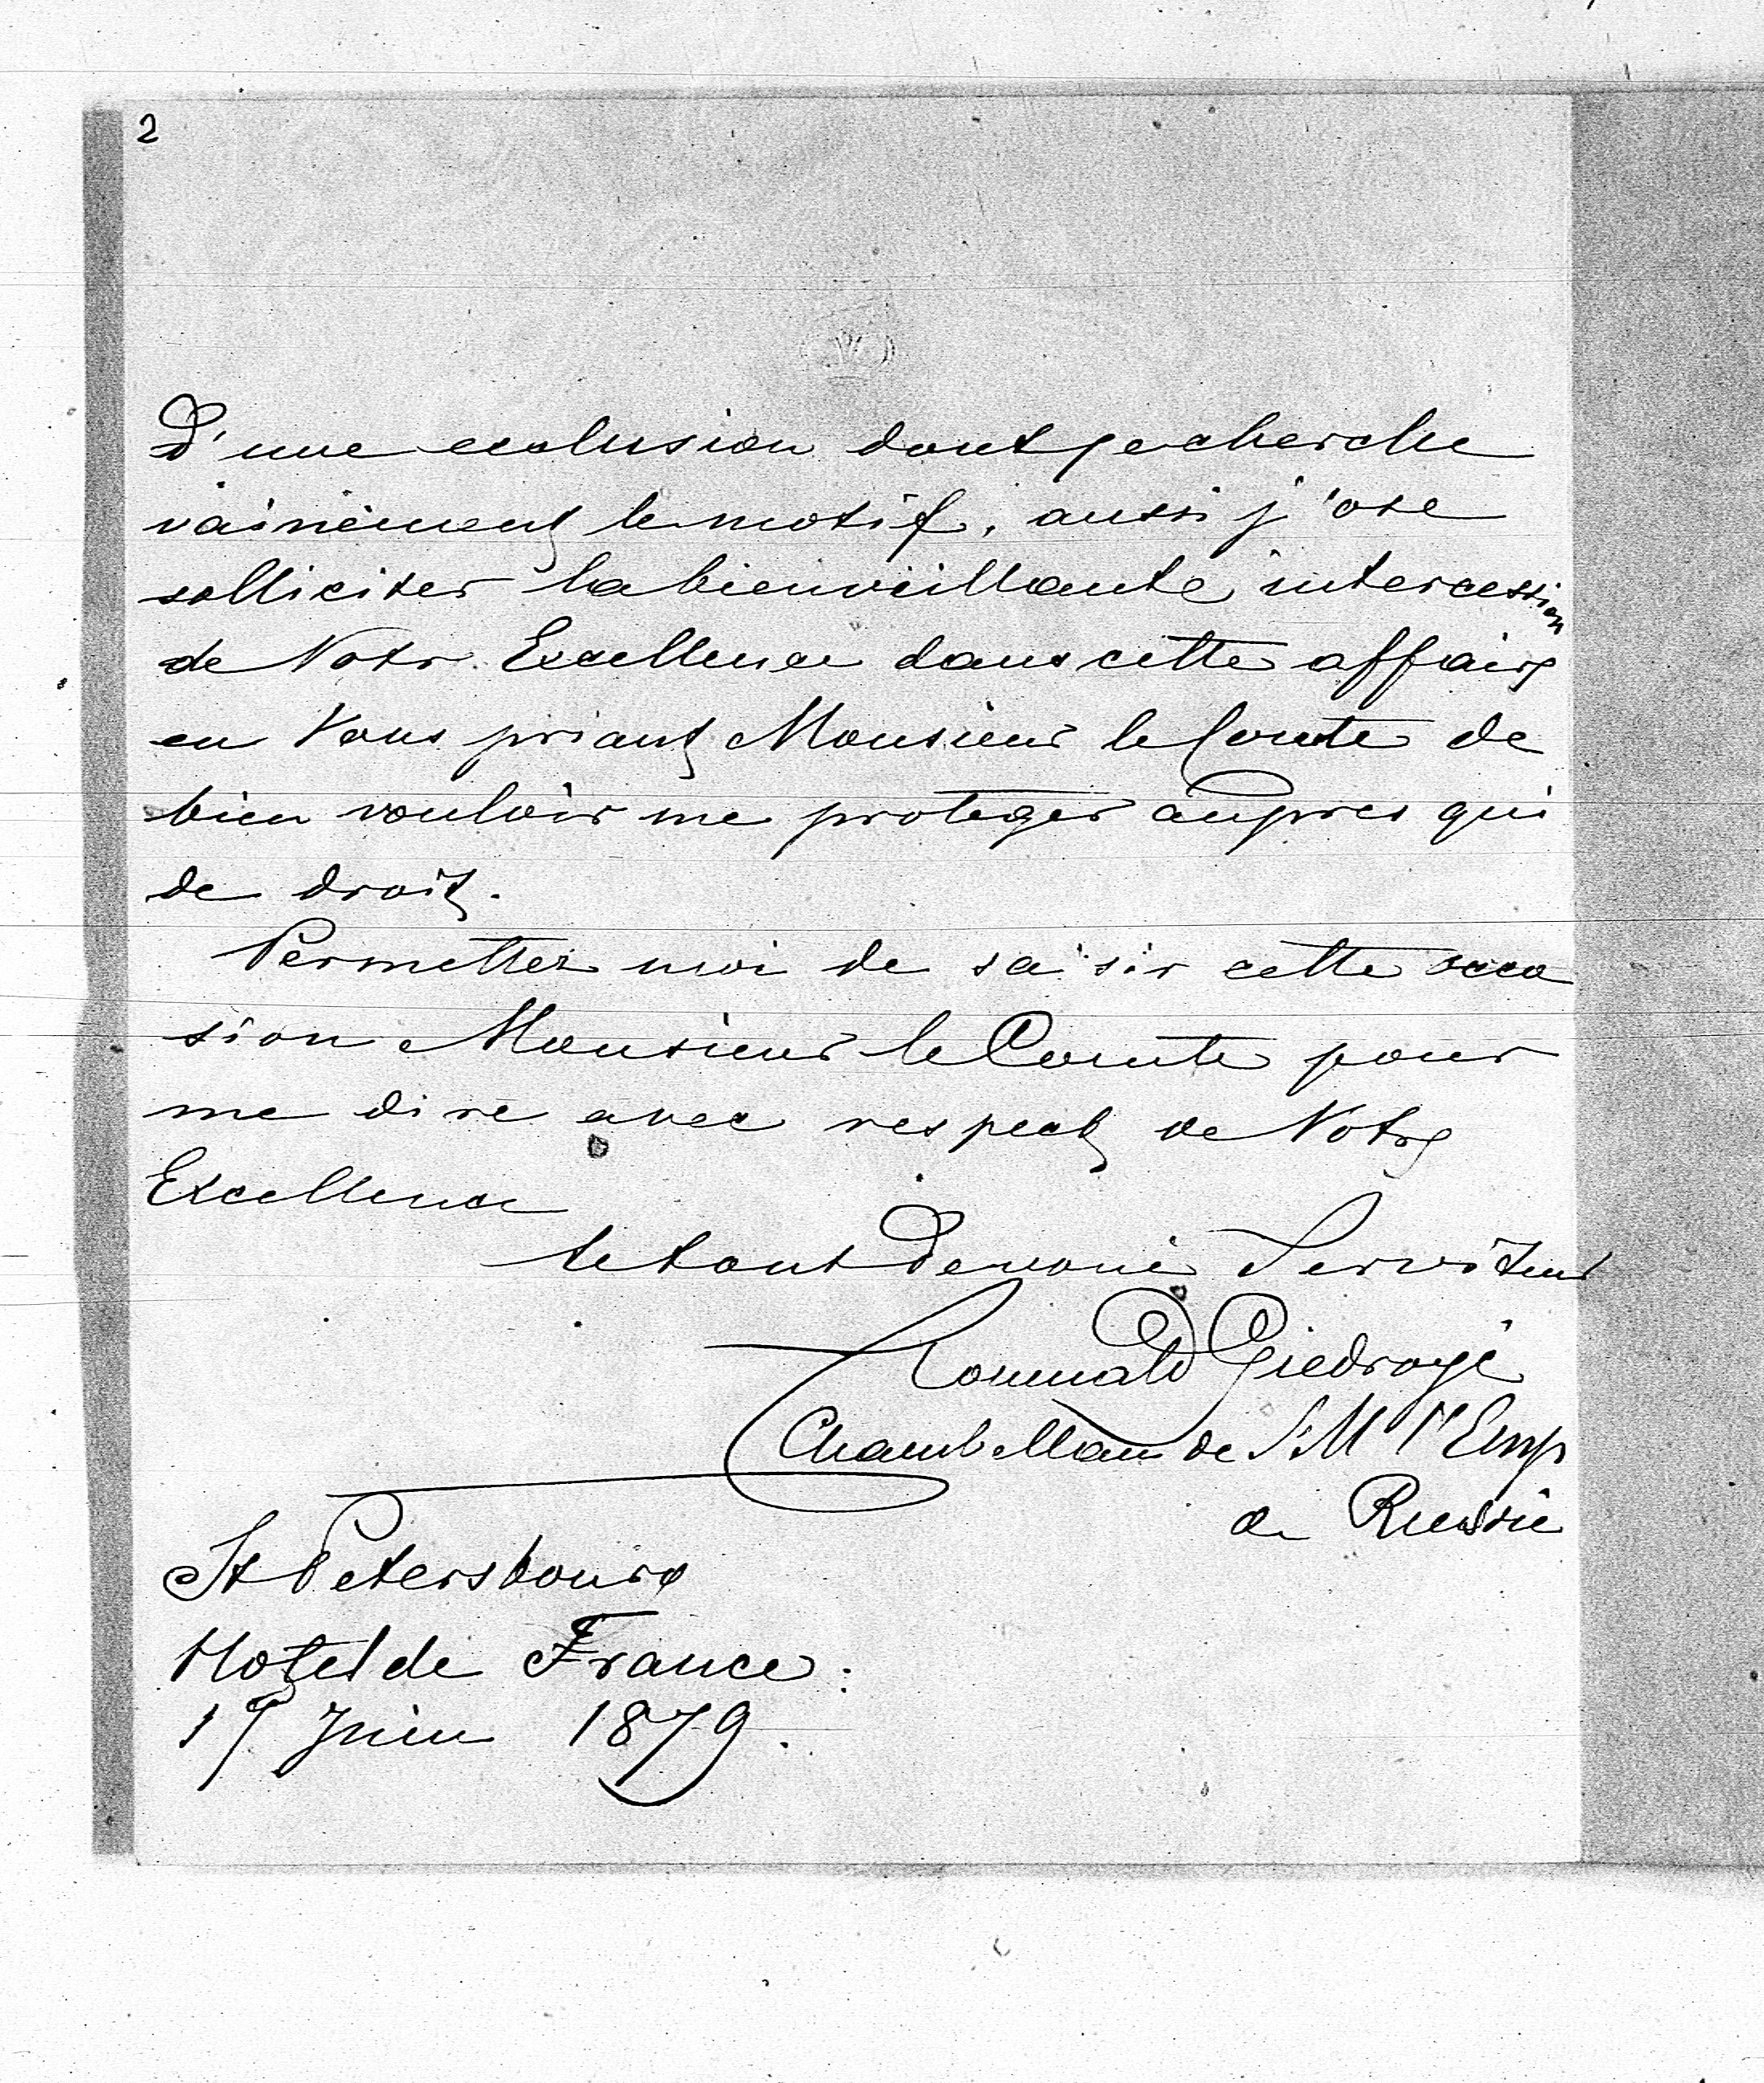 2
D'une exclusion dont je cherche
vainement le motif, aussi j'ose
solliciter la bienveillante intercession
de Votr. Excellence dans cette affaire
en Vous priant Monsieur le Comte de
bien vouloir me proteger aupres qui
de droit.
Permettez moi de saisir cette occa
sion Monsieur le Comte pour
me dire avec respect de Votre
Excellence
le tout Devoué Serviteur
Romuald Giedroyć
Chambellan de S. M l'Emp
de Russie
St Petersbourg
Hotel de France.
Juin 1879.